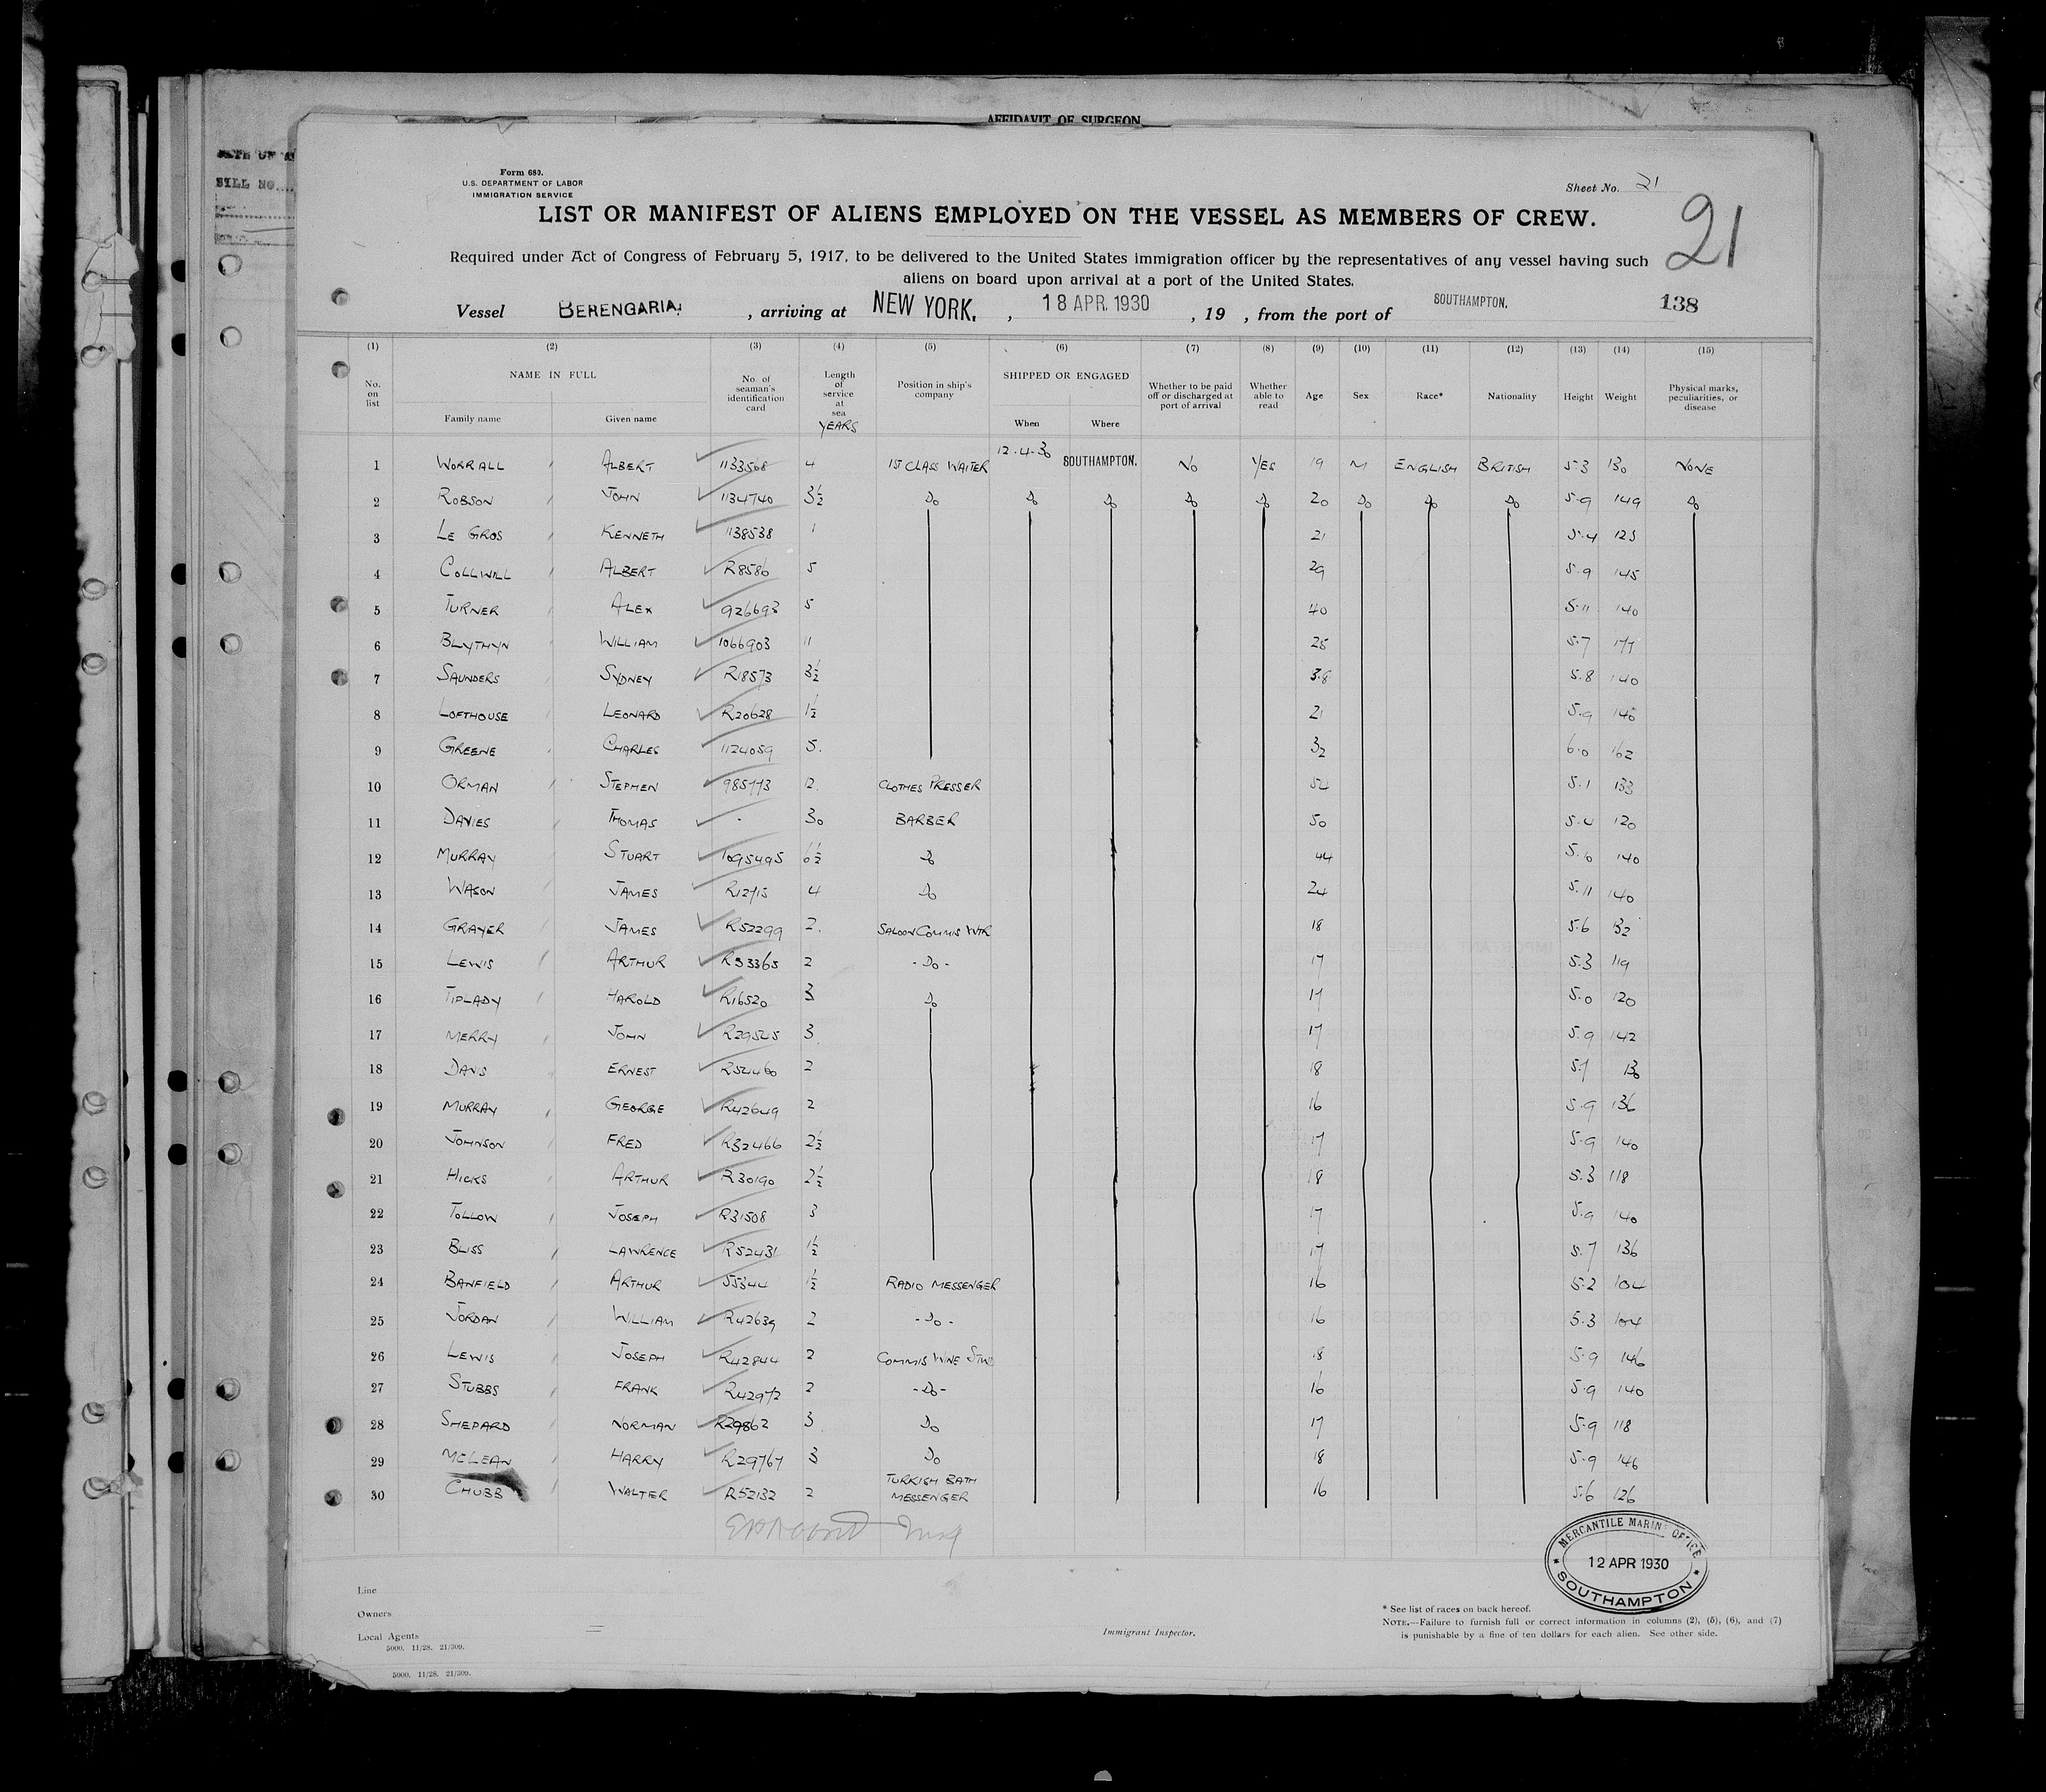 AFFIDAVIT OF SURGEON
BILL NO.
Form 680.
U.S. DEPARTMENT OF LABOR
IMMIGRATION SERVICE
Sheet No. 21
21
LIST OR MANIFEST OF ALIENS EMPLOYED ON THE VESSEL AS MEMBERS OF CREW.
Required under Act of Congress of February 5, 1917, to be delivered to the United States immigration officer by the representatives of any vessel having such
aliens on board upon arrival at a port of the United States.
Vessel BERENGARIA. , arriving at NEW YORK. , 18 APR. 1930 , 19 , from the port of SOUTHAMPTON. 138
(1) (2) (3) (4) (5) (6) (7) (8) (9) (10) (11) (12) (13) (14) (15)
No. on list NAME IN FULL Family name Given name No. of seaman's identification card Length of service at sea YEARS Position in ship's company SHIPPED OR ENGAGED When Where Whether to be paid off or discharged at port of arrival Whether able to read Age Sex Race* Nationality Height Weight Physical marks, peculiarities, or disease
1 WORRALL ALBERT 1133568 4 1ST CLASS WAITER 12.4.30 SOUTHAMPTON. NO YES 19 M ENGLISH BRITISH 5.3 130 NONE
2 ROBSON JOHN 1134740 3½ Do Do Do Do Do 20 Do Do Do 5.9 149 Do
3 LE GROS KENNETH 1138538 1 21 5.4 125
4 COLLWILL ALBERT R8580 5 29 5.9 145
5 TURNER ALEX 926693 5 40 5.11 140
6 BLYTHYN WILLIAM 1066903 11 28 5.7 177
7 SAUNDERS SYDNEY R18573 3½ 38 5.8 140
8 LOFTHOUSE LEONARD R20628 1½ 21 5.9 140
9 GREENE CHARLES 1124059 5. 32 6.0 162
10 ORMAN STEPHEN 985773 12. CLOTHES PRESSER 54 5.1 133
11 DAVIES THOMAS - 30 BARBER 50 5.4 120
12 MURRAY STUART 1095495 6½ Do 44 5.10 140
13 WASON JAMES R12715 4 Do 24 5.11 140
14 GRAYER JAMES R52299 2. SALOON COMMIS WTR 18 5.6 132
15 LEWIS ARTHUR R53365 2 -Do- 17 5.3 119
16 TIPLADY HAROLD R16520 3 Do 17 5.0 120
17 MERRY JOHN R29545 3. 17 5.9 142
18 DAVIS ERNEST R54460 2 18 5.7 130
19 MURRAY GEORGE R42649 2 16 5.9 136
20 JOHNSON FRED R32466 2½ 17 5.9 140
21 HICKS ARTHUR R30190 2½ 18 5.3 118
22 TOLLOW JOSEPH R31508 3 17 5.9 140
23 BLISS LAWRENCE R52431 1½ 17 5.7 136
24 BANFIELD ARTHUR 55344 1½ RADIO MESSENGER 16 5.2 104
25 JORDAN WILLIAM R42639 2 -Do- 16 5.3 104
26 LEWIS JOSEPH R42844 2 COMMIS WINE STWD 18 5.9 146
27 STUBBS FRANK R42972 2 -Do- 16 5.9 140
28 SHEPARD NORMAN R29862 3 Do 17 5.9 118
29 MCLEAN HARRY R29767 3 Do 18 5.9 146
30 CHUBB WALTER R52132 2 TURKISH BATH MESSENGER 16 5.6 126
MERCANTILE MARINE OFFICE
12 APR 1930
SOUTHAMPTON
Line
Owners
Local Agents
5000. 11/28. 21/309.
Immigrant Inspector.
* See list of races on back hereof.
NOTE.—Failure to furnish full or correct information in columns (2), (5), (6), and (7)
is punishable by a fine of ten dollars for each alien. See other side.
5000. 11/28. 21/309.